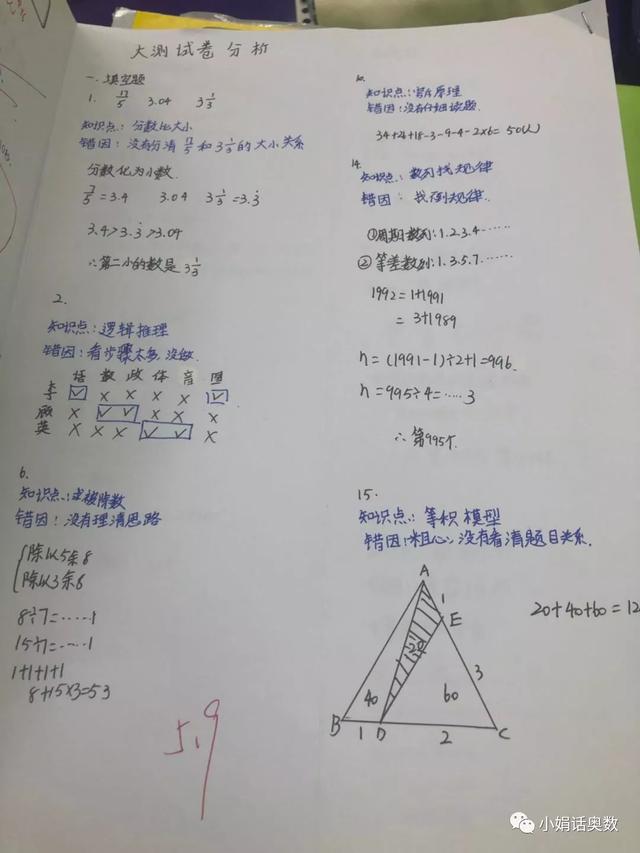 大测试卷分析
一.填空题
1. 17/5 3.04 3 1/3
知识点:分数比大小
错因:没有分清 17/5 和 3 1/3 的大小关系
分数化为小数
17/5=3.4 3.04 3 1/3=3.3̇
3.4>3.3̇>3.04
∴第二小的数是 3 1/3
2.
知识点:逻辑推理
错因:看步骤太多,没做.
语 数 政 体 音 图
李 ✓ X X X X ✓
顾 X ✓ ✓ X X X
英 X X X ✓ ✓ X
6.
知识点:求被除数
错因:没有理清思路
除以5余8
除以3余6
8÷7=……1
15÷7=……1
1+1+1+1
8+15×3=53
5.9
知识点:容斥原理
错因:没有仔细读题.
34+24+18-3-9-4-2×6=50(人)
14.
知识点:数列找规律
错因:找不到规律.
①周期数列:1.2.3.4……
②等差数列:1.3.5.7……
1992=1+1991
=3+1989
n=(1991-1)÷2+1=996.
n=995÷4=……3
∴第995个.
15.
知识点:等积模型
错因:粗心,没有看清题目关系.
A
1
E
20
3
40
60
B 1 D 2 C
20+40+60=12
小娟话奥数